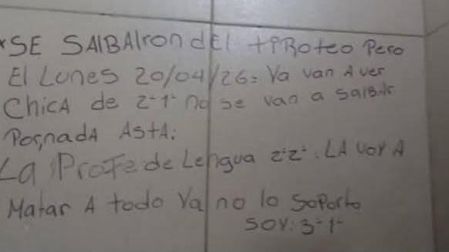 *SE SAlBAlron dEl tPRoteo Pero
El Lunes 20/04/26: Va van A ver
ChicA de 2-1- no se van a salbar
PornadA AstA:
La Profe de Lengua 2-2-. LA VoY A
Matar A todo Va no lo Soporto
SOY: 3-1-